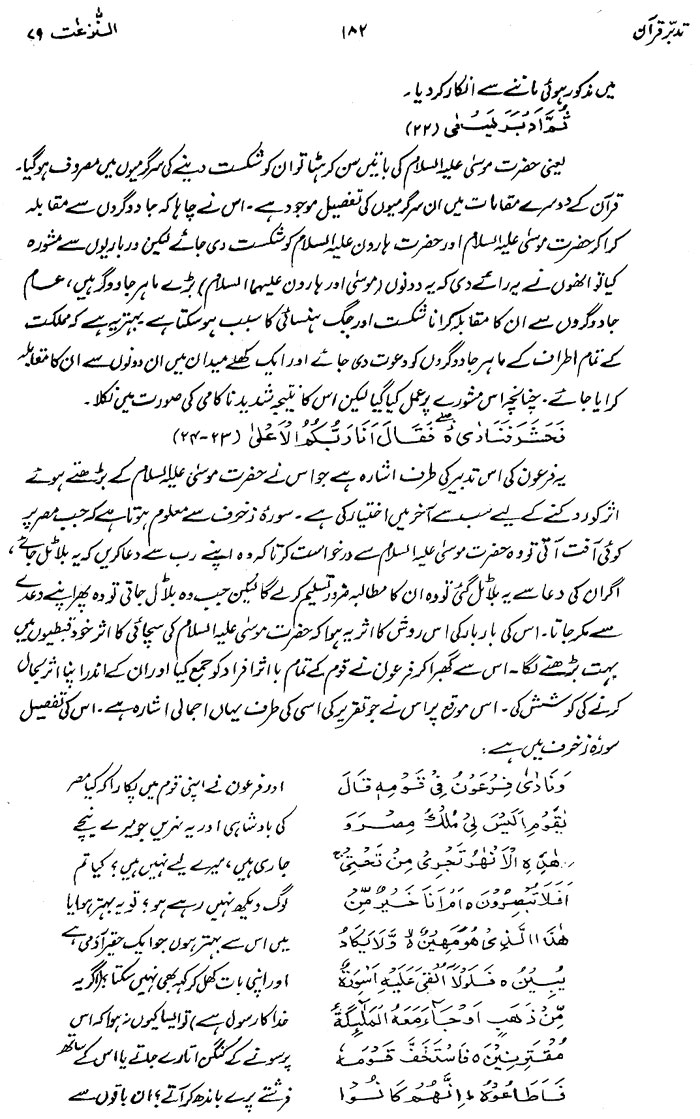 تدبّر قرآن ۱۸۲ النّٰزعٰت ۷۹
میں مذکور ہوئی ماننے سے انکار کر دیا۔
ثُمَّ اَدْبَرَ یَسْعٰی (۲۲)
یعنی حضرت موسیٰ علیہ السلام کی باتیں سن کر ہٹا تو ان کو شکست دینے کی سرگرمیوں میں مصروف ہوگیا۔
قرآن کے دوسرے مقامات میں ان سرگرمیوں کی تفصیل موجود ہے۔ اس نے چاہا کہ جادوگروں سے مقابلہ
کرا کر حضرت موسیٰ علیہ السلام اور حضرت ہارون علیہ السلام کو شکست دی جائے لیکن درباریوں سے مشورہ
کیا تو انھوں نے یہ رائے دی کہ یہ دونوں (موسیٰ اور ہارون علیہما السلام) بڑے ماہر جادوگر ہیں، عام
جادوگروں سے ان کا مقابلہ کرانا شکست اور جگ ہنسائی کا سبب ہوسکتا ہے۔ بہتر یہ ہے کہ مملکت
کے تمام اطراف کے ماہر جادوگروں کو دعوت دی جائے اور ایک کھلے میدان میں ان دونوں سے ان کا مقابلہ
کرایا جائے۔ چنانچہ اس مشورے پر عمل کیا گیا لیکن اس کا نتیجہ شدید ناکامی کی صورت میں نکلا۔
فَحَشَرَ فَنَادٰی ۵ۖ فَقَالَ اَنَا رَبُّکُمُ الْاَعْلٰی (۲۳-۲۴)
یہ فرعون کی اس تدبیر کی طرف اشارہ ہے جو اس نے حضرت موسیٰ علیہ السلام کے بڑھتے ہوئے
اثر کو روکنے کے لیے سب سے آخر میں اختیار کی ہے۔ سورۂ زخرف سے معلوم ہوتا ہے کہ جب مصر پر
کوئی آفت آتی تو وہ حضرت موسیٰ علیہ السلام سے درخواست کرتا کہ وہ اپنے رب سے دعا کریں کہ یہ بلا ٹل جائے،
اگر ان کی دعا سے یہ بلا ٹل گئی تو وہ ان کا مطالبہ ضرور تسلیم کر لے گا لیکن جب وہ بلا ٹل جاتی تو وہ پھر اپنے وعدے
سے مکر جاتا۔ اس کی بار بار کی اس روش کا اثر یہ ہوا کہ حضرت موسیٰ علیہ السلام کی سچائی کا اثر خود قبطیوں میں
بہت بڑھنے لگا۔ اس سے گھبرا کر فرعون نے قوم کے تمام با اثر افراد کو جمع کیا اور ان کے اندر اپنا اثر بحال
کرنے کی کوشش کی۔ اس موقع پر اس نے جو تقریر کی اسی کی طرف یہاں اجمالی اشارہ ہے۔ اس کی تفصیل
سورۂ زخرف میں ہے:
وَنَادٰی فِرْعَوْنُ فِیْ قَوْمِہٖ قَالَ
یٰقَوْمِ اَلَیْسَ لِیْ مُلْکُ مِصْرَ وَ
ھٰذِہِ الْاَنْھٰرُ تَجْرِیْ مِنْ تَحْتِیْ ج
اَفَلَا تُبْصِرُوْنَ ۵ اَمْ اَنَا خَیْرٌ مِّنْ
ھٰذَا الَّذِیْ ھُوَ مَھِیْنٌ ۵ وَّلَا یَکَادُ
یُبِیْنُ ۵ فَلَوْلَآ اُلْقِیَ عَلَیْہِ اَسْوِرَۃٌ
مِّنْ ذَھَبٍ اَوْ جَآءَ مَعَہُ الْمَلٰٓئِکَۃُ
مُقْتَرِنِیْنَ ۵ فَاسْتَخَفَّ قَوْمَہٗ
فَاَطَاعُوْہُ ط اِنَّھُمْ کَانُوْا
اور فرعون نے اپنی قوم میں پکارا کر کیا مصر
کی بادشاہی اور یہ نہریں جو میرے نیچے
جاری ہیں، میرے لیے نہیں ہیں؟ کیا تم
لوگ دیکھ نہیں رہے ہو؟ تو یہ بہتر ہوا یا
میں اس سے بہتر ہوں جو ایک حقیر آدمی ہے
اور اپنی بات کھل کر کہہ بھی نہیں سکتا؟ (اگر یہ
خدا کا رسول ہے) تو ایسا کیوں نہ ہوا کہ اس
پر سونے کے کنگن اتارے جاتے یا اس کے ساتھ
فرشتے پرے باندھ کر آتے؟ ان باتوں سے